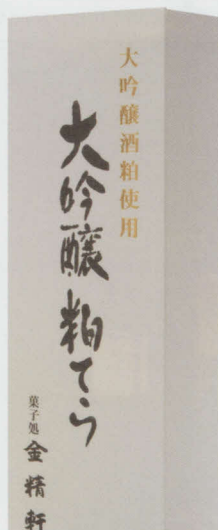 大吟醸酒粕使用
大吟醸粕てら
菓子処
金精軒